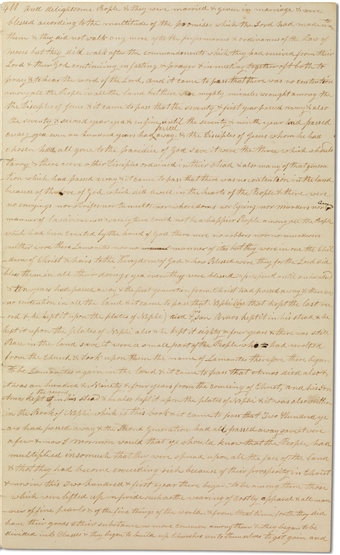 and delightsome People & they were married & given in marriage & were
blessed according to the multitude of the promises which the Lord had made unto
them & they did not walk any more after the performances & ordinances of the law of
Moses but they did walk after the commandments which they had received from their
Lord & their God continuing in fasting & prayer & in meeting together oft both to
pray & to hear the word of the Lord and it came to pass that there was no contention
among all the People in all the land but there were mighty miracles wrought among the
the Disciples of Jesus & it came to pass that the seventy & first year passed away & also
the seventy & second year yea & in fine till the seventy & ninth year had passed
away yea even an hundred years had passed away & the disciples of Jesus whom he had
chosen had all gone to the paradise of God save it were the three which should
tarry & there were other Disciples ordained in their stead & also many of that genera
tion which had passed away & it came to pass that there was no contention in the land
because of the love of God which did dwell in the hearts of the People & there were
no envyings nor strifes nor tumults nor whoredoms nor lyings nor murders nor any
manner of lasciviousness & surely there could not be a happier People among all the People
which had been created by the hand of God there were no robbers nor no murderers
neither were there Lamanites nor no manner of ites but they were in one the chil
dren of Christ & heirs to the Kingdom of God & how blessed were they for the Lord did
bless them in all their doings yea even they were blessed & prospered until an hundred
& ten years had passed away & the first generation from Christ had passed away & there
was no contention in all the land & it came to pass that Nephi he that kept the last re
cord & he kept it upon the plates of Nephi died & his son Amos kept it in his stead & he
kept it upon the plates of Nephi also & he kept it eighty & four years & there was still
peace in the land save it were a small part of the People who had revolted
from the church & took upon them the name of Lamanites therefore there began
to be Lamanites again in the land & it came to pass that Amos died also &
it was an hundred & ninety & four years from the coming of Christ and his son
Amos kept the record in his stead & he also kept it upon the plates of Nephi & it was also written
in the Book of Nephi which is this book & it came to pass that two hundred ye
ars had passed away & the second generation had all passed away save it were
a few & now I Mormon would that ye should know that the People had
multiplied insomuch that they were spread upon all the face of the land
& that they had become exceeding rich because of their prosperity in Christ
& now in this two hundred & first year there began to be among them those
which were lifted up in pride such as the wearing of costly apparel & all man
ner of fine pearls & of the fine things of the world & from that time forth they did
have their goods & their substance no more common among them & they began to be
divided into classes & they began to build up churches unto themselves to get gain and